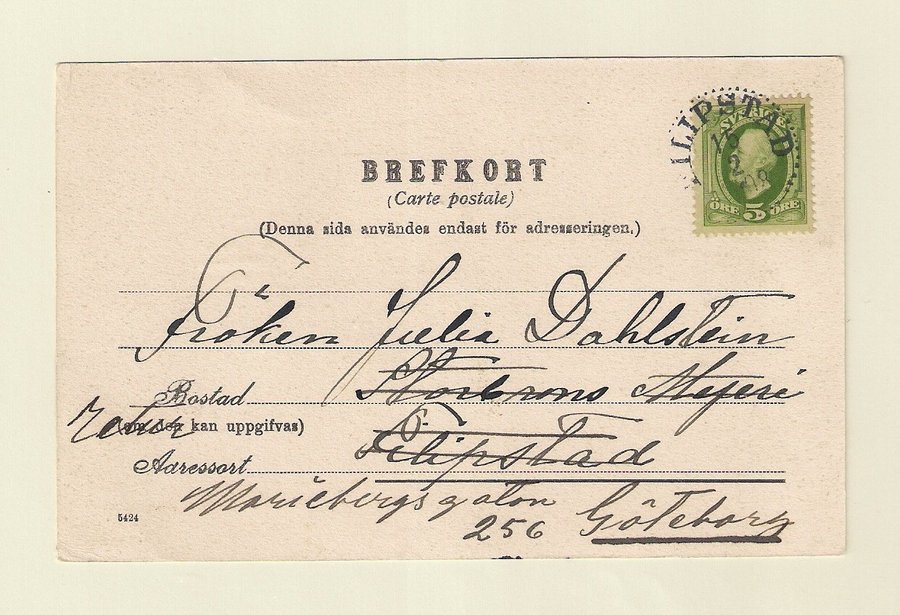 FILIPSTAD
15
2
SVERIGE
ÖRE 5 ÖRE
BREFKORT
(Carte postale)
(Denna sida användes endast för adresseringen.)
Fröken Julia Dahlstein
Storbrons Mejeri
Bostad
(om den kan uppgifvas)
Retur
Filipstad
Adressort
Mariebergsgatan
256 Göteborg
5424